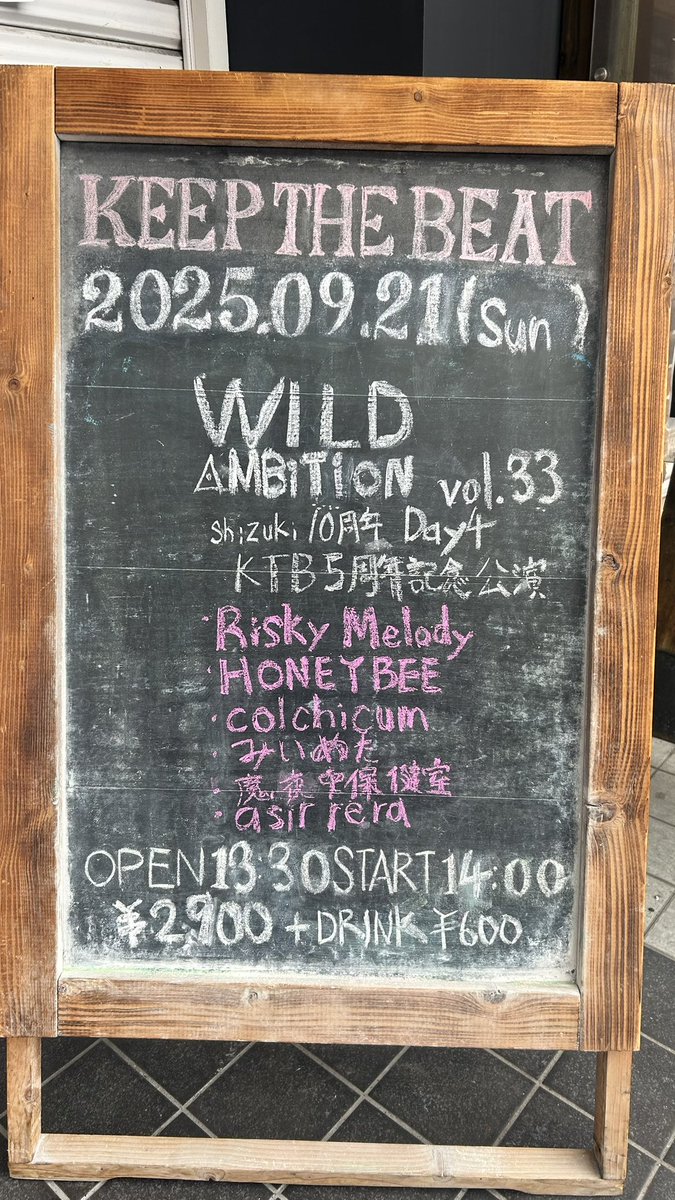 KEEP THE BEAT
2025.09.21(Sun)
WILD
AMBiTiON vol.33
shizuki 10周年 Day4
KTB5周年記念公演
・Risky Melody
・HONEYBEE
・colchicum
・みいめた
・魔夜中保健室
・asir rera
OPEN13:30START14:00
¥2900+DRINK¥600